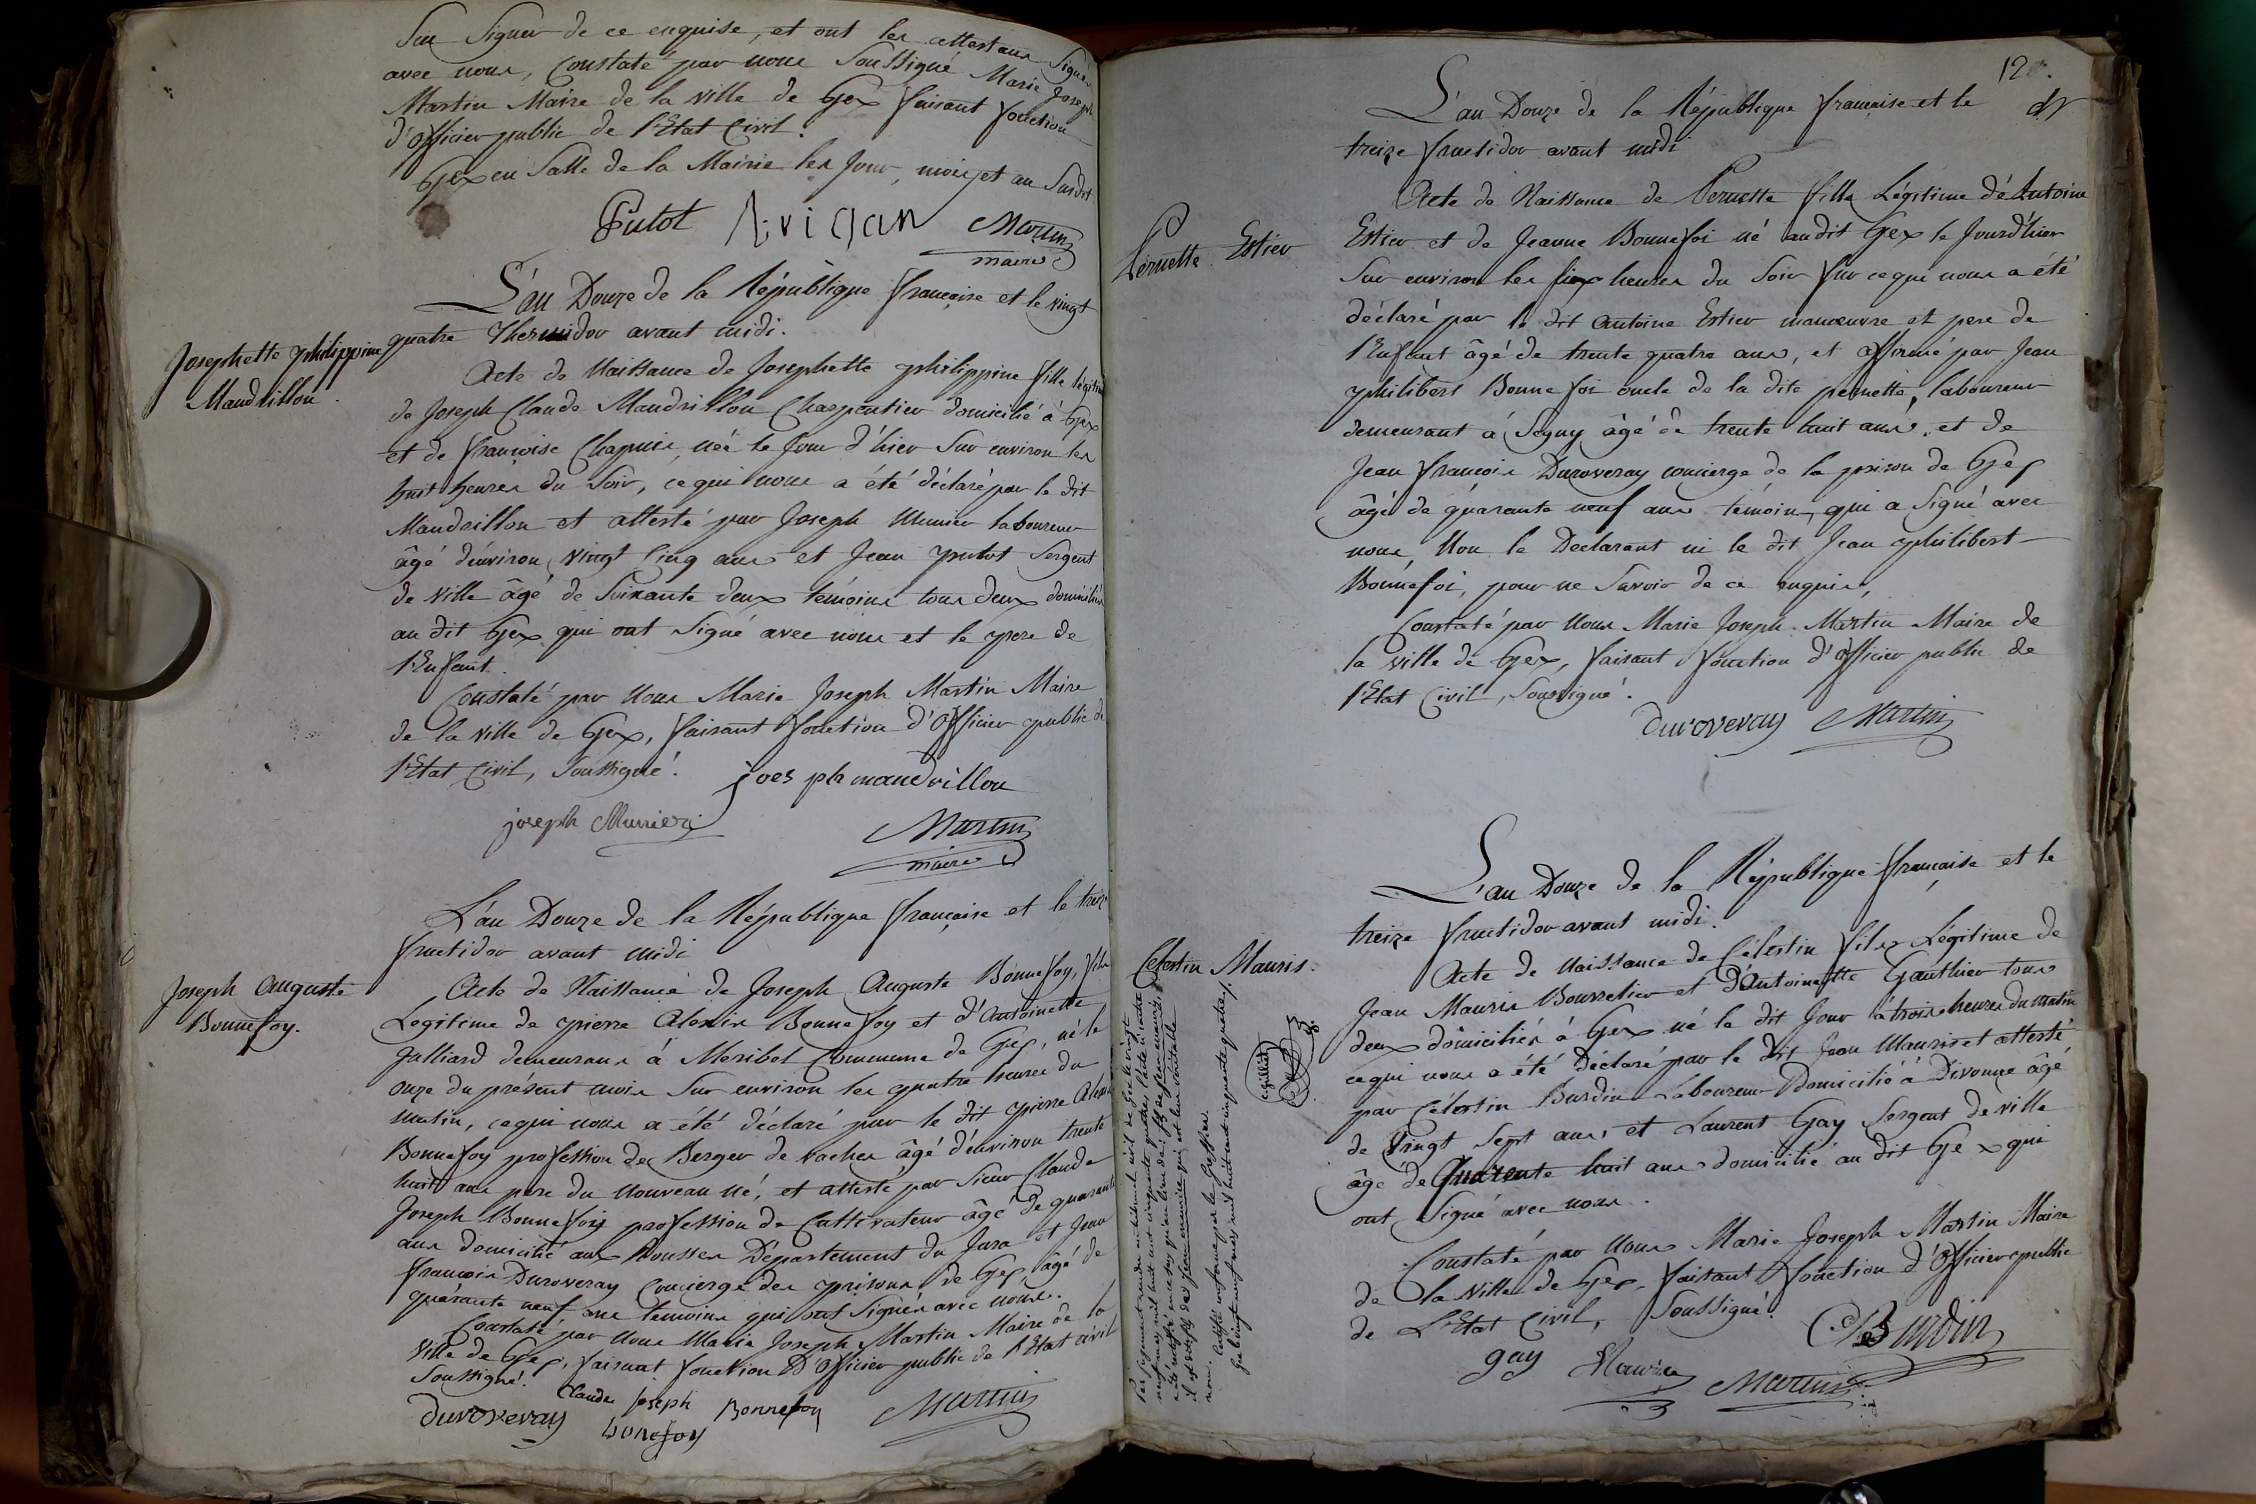 Sue Signer de ce enquise, et ont les attestans Signé
avec nous, Constaté par nous Soussigné Marie Joseph
Martin Maire de la ville de Gex faisant fonction
d'officier public de l'Etat Civil.
Gex en Salle de la Mairie les Jour, mois et an Susdit
Putot Avigan Martin
maire
L'an Douze de la République française et le vingt
quatre Thermidor avant midi.
Josephette philippine
Mandrillon
Acte de Naissance de Josephette philippine fille légitime
de Joseph Claude Mandrillon Charpentier domicilié à Gex
et de françoise Chapuis, née le Jour d'hier Sur environ les
huit heures du Soir, ce qui nous a été déclaré par le dit
Mandrillon et attesté par Joseph Munier laboureur
âgé d'environ vingt Cinq ans et Jean putot Sergent
de ville âgé de Soixante deux témoins tous deux domiciliés
au dit Gex qui ont Signé avec nous et le pere de
l'Enfant.
Constaté par Nous Marie Joseph Martin Maire
de la ville de Gex, faisant fonction d'Officier public de
l'Etat Civil, Soussigné.
joesph mandrillon
joseph Munier
Martin
maire
L'an Douze de la République française et le treize
fructidor avant midi
Joseph Auguste
Bonnefoy.
Acte de Naissance de Joseph Auguste Bonnefoy, fils
Legitime de pierre Alexis Bonnefoy et d'Antoinette
Julliard demeurans à Meribel Commune de Gex, né le
onze du présent mois Sur environ les quatre heures du
matin, ce qui nous a été déclaré par le dit pierre Alexis
Bonnefoy profession de Berger de vaches âgé d'environ trente
huit ans pere du Nouveau né, et attesté par Sieur Claude
Joseph Bonnefoy profession de Cultivateur âgé de quarante
ans domicilié aux Rousses Département du Jura et Jean
françois Duroveray Concierge des prisons de Gex, âgé de
quarante neuf ans temoins qui ont Signés avec nous.
Constaté par Nous Marie Joseph Martin Maire de la
Ville de Gex, faisant fonction D'Officier public de l'Etat civil
Soussigné.
Duroveray Claude Joseph Bonnefoy
bonefoy
Martin
12
L'an Douze de la République française et le
treize fructidor avant midi
Pernette Estier
Acte de Naissance de Pernette fille Légitime d'Antoine
Estier et de Jeanne Bonnefoi né audit Gex le Jourd'hier
Sur environ les six heures du Soir Sur ce qui nous a été
déclaré par le dit Antoine Estier manœuvre et pere de
l'Enfant âgé de trente quatre ans, et affirmé par Jean
philibert Bonnefoi oncle de la dite pernette, laboureur
demeurant à Segny âgé de trente huit ans, et de
Jean françois Duroveray concierge de la prison de Gex
âgé de quarante neuf ans témoin, qui a Signé avec
nous Non le Declarant ni le dit Jean philibert
Bonnefoi, pour ne Savoir de ce enquis,
Constaté par Nous Marie Joseph Martin Maire de
la ville de Gex, faisant fonction d'officier public de
l'Etat Civil, Soussigné.
duroveray Martin
L'an Douze de la République française et le
treize fructidor avant midi.
Celestin Mauris.
Acte de Naissance de Célestin fils Légitime de
Jean Mauris Bourrelier et d'Antoinette Gauthier tous
deux domiciliés à Gex né le dit Jour à trois heures du matin
ce qui nous a été Déclaré par le dit Jean Mauris et attesté
par Célestin Burdin Laboureur Domicilié à Divonne âgé
de vingt Sept ans, et Laurent Gay Sergent de ville
âgé de Quarente huit ans domicilié au dit Gex qui
ont Signé avec nous.
Constaté par Nous Marie Joseph Martin Maire
de la Ville de Gex, faisant fonction d'Officier public
de L'Etat Civil, Soussigné.
Burdin
gay Mauris Martin
Par jugement rendu
mil huit cent cinquante quatre